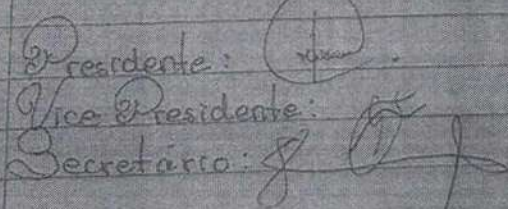 Presidente:
Vice Presidente:
Secretário: